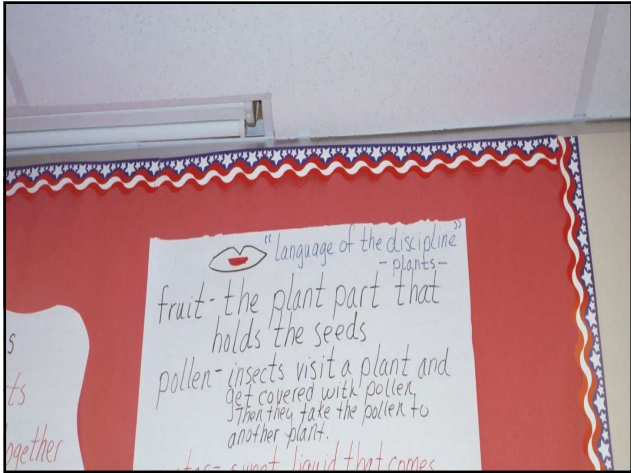 "language of the discipline"
-plants-
fruit- the plant part that
holds the seeds
pollen- insects visit a plant and
get covered with pollen,
Then they take the pollen to
another plant.
sweet liquid that comes
s
ts
ogether